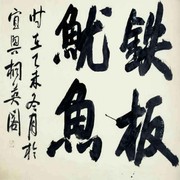 鉄板
魷魚
时在丁未冬月於
宜興桐英閣